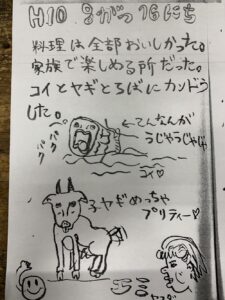 H10 8がつ16にち
料理は全部おいしかった。
家族で楽しめる所だった。
コイとヤギとろばにカンドう
した。
←てんなんが
うじゃうじゃじゃ
パク
パク
コイ♡
子ヤギめっちゃ
プリティー♡